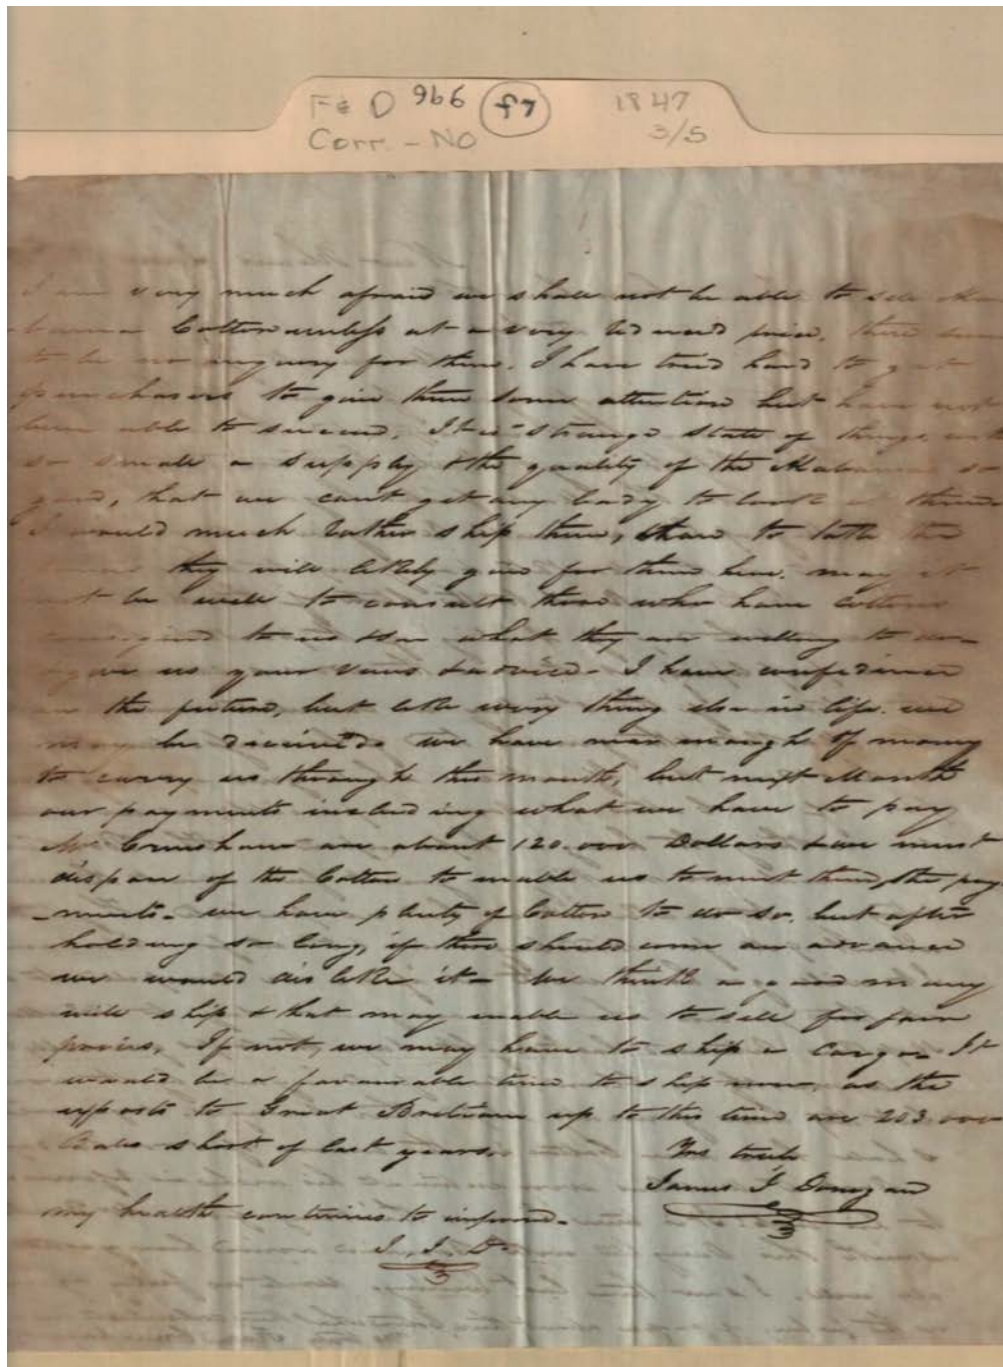 F&D 966 f7 1847
Corr. - NO 3/5
I am very much afraid we shall not be able to sell Ala
bama Cotton unless at a very reduced price. there seems
to be no inquiry for them. I have tried hard to get
purchasers to give them some attention but have not
been able to succeed. It is strange state of things, with
so small a supply & the quality of the Alabamas so
good, that we cant get any body to look at them
I would much rather ship them, than to take the
they will likely give for them here. may it
not be well to consult those who have cottons
consigned to us & see what they are willing to do -
give us your views & advice - I have confidence
in the future, but like every thing else in life. we
may be deceived. we have near enough of money
to carry us through this month, but next Month
our payments including what we have to pay
Mr Crenshaw are about 120.000 Dollars & we must
dispose of the Cotton to enable us to meet them, the pay
-ments - we have plenty of Cotton to do so, but after
holding so long, if there should come an advance
we would dislike it - We think a good many
will ship & that may enable us to sell for fair
prices. If not, we may have to ship a Cargo - It
would be a favourable time to ship now, as the
exports to Great Britian up to this time are 203.000
Bales short of last years.
Yrs truly
James J Donegan
my health continues to improve -
J. J. D